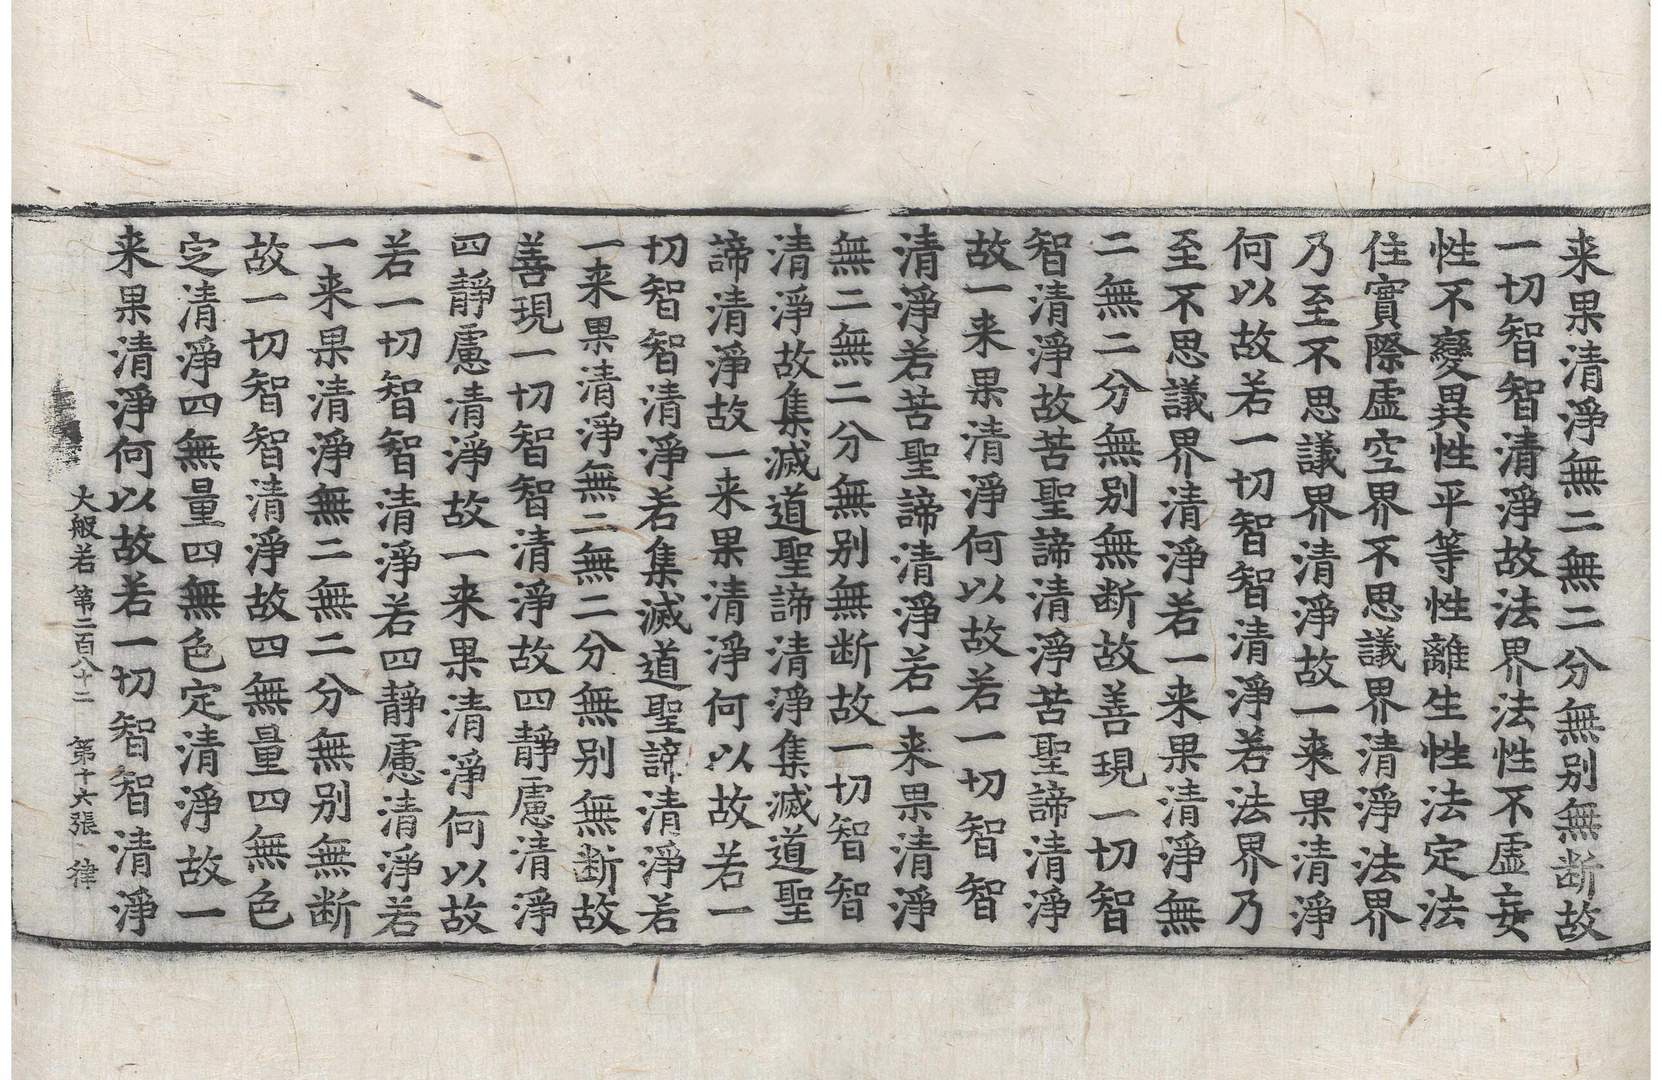 来果清淨無二無二分無別無断故
一切智智清淨故法界法性不虛妄
性不變異性平等性離生性法定法
住實際虛空界不思議界清淨法界
乃至不思議界清淨故一来果清淨
何以故若一切智智清淨若法界乃
至不思議界清淨若一来果清淨無
二無二分無別無断故善現一切智
智清淨故苦聖諦清淨苦聖諦清淨
故一来果清淨何以故若一切智智
清淨若苦聖諦清淨若一来果清淨
無二無二分無別無断故一切智智
清淨故集滅道聖諦清淨集滅道聖
諦清淨故一来果清淨何以故若一
切智智清淨若集滅道聖諦清淨若
一来果清淨無二無二分無別無断故
善現一切智智清淨故四靜慮清淨
四靜慮清淨故一来果清淨何以故
若一切智智清淨若四靜慮清淨若
一来果清淨無二無二分無別無断
故一切智智清淨故四無量四無色
定清淨四無量四無色定清淨故一
来果清淨何以故若一切智智清淨
大般若 第二百八十二 第十六張 律